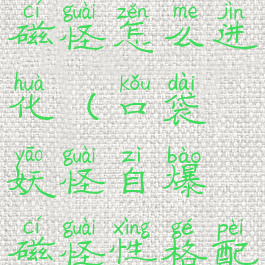 cí guài zěn me jìn
磁怪怎么进
huà kǒu dài
化(口袋
yāo guài zì bào
妖怪自爆
cí guài xìng gé pèi
磁怪性格配